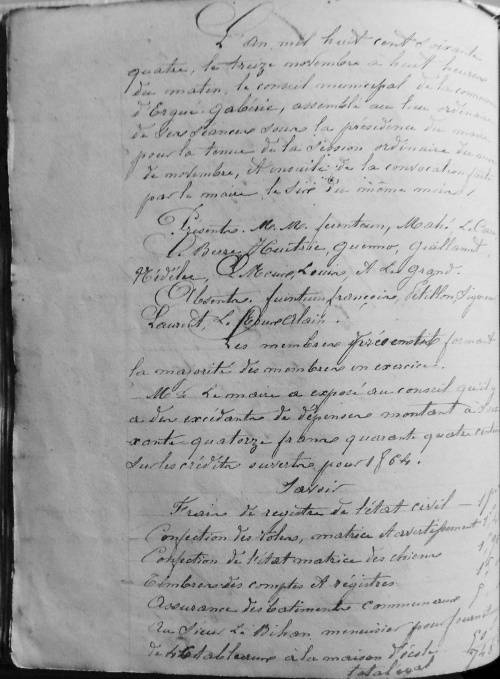 L'an mil huit cent soixante
quatre, le treize novembre a huit heures
du matin, le conseil municipal de la commune
d'Ergué-Gabéric, assemblé au lieu ordinaire
de ses séances sous la présidence du maire
pour la tenue de la session ordinaire du mois
de novembre, et ensuite de la convocation faite
par le maire le six du même mois.
Présents M. M. feunteun, Mahé, Le Caro
Le Berre, Huitric, Guenno, Guillamet
Nédélec, Le Meur, Louis, et Le Grand.
Absents feunteun françois, Pétillon,
Laurent, Le Meur Alain.
Les membres présents formant
la majorité des membres en exercice.
Mr Le maire a exposé au conseil qu'il y
a des excédants de dépenses montant à soi
xante quatorze francs quarante quatre centimes
sur les crédits ouverts pour 1864.
Savoir
Frais de registre de l'état civil
Confection des roles, matrice et avertissement
Confection de l'état matrice des chiens
timbres des comptes et registres
Assurance des batiments communaux
Au Sieur Le Bihan, menuisier pour
de tableaux à la maison d'école
total égal